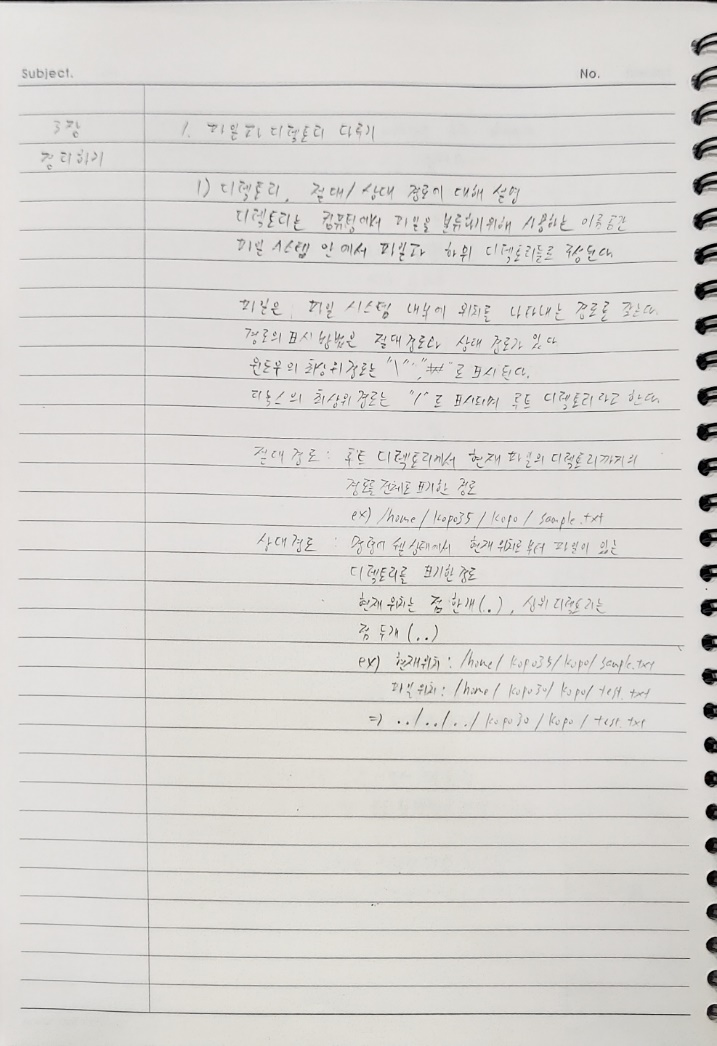 Subject. No.
3장 1. 파일과 디렉토리 다루기
정리하기
1) 디렉토리, 절대/상대 경로에 대해 설명
디렉토리는 컴퓨팅에서 파일을 분류하기위해 사용하는 이름공간
파일 시스템 안에서 파일과 하위 디렉토리들로 구성된다.
파일은 파일 시스템 내부에 위치를 나타내는 경로를 갖는다.
경로의 표시 방법은 절대 경로와 상대 경로가 있다
윈도우의 최상위 경로는 "\", "₩"로 표시된다.
리눅스의 최상위 경로는 "/"로 표시되며 루트 디렉토리라고 한다.
절대 경로 : 루트 디렉토리에서 현재 파일의 디렉토리까지의
경로를 전체로 표기한 경로
ex) /home/kopo35/kopo/sample.txt
상대경로 : 명령어 쉘 상태에서 현재 위치로부터 파일이 있는
디렉토리를 표기한 경로
현재 위치는 점 한개(.), 상위 디렉토리는
점 두개(..)
ex) 현재위치 : /home/kopo35/kopo/sample.txt
파일 위치 : /home/kopo30/kopo/test.txt
=> ../../../kopo30/kopo/test.txt